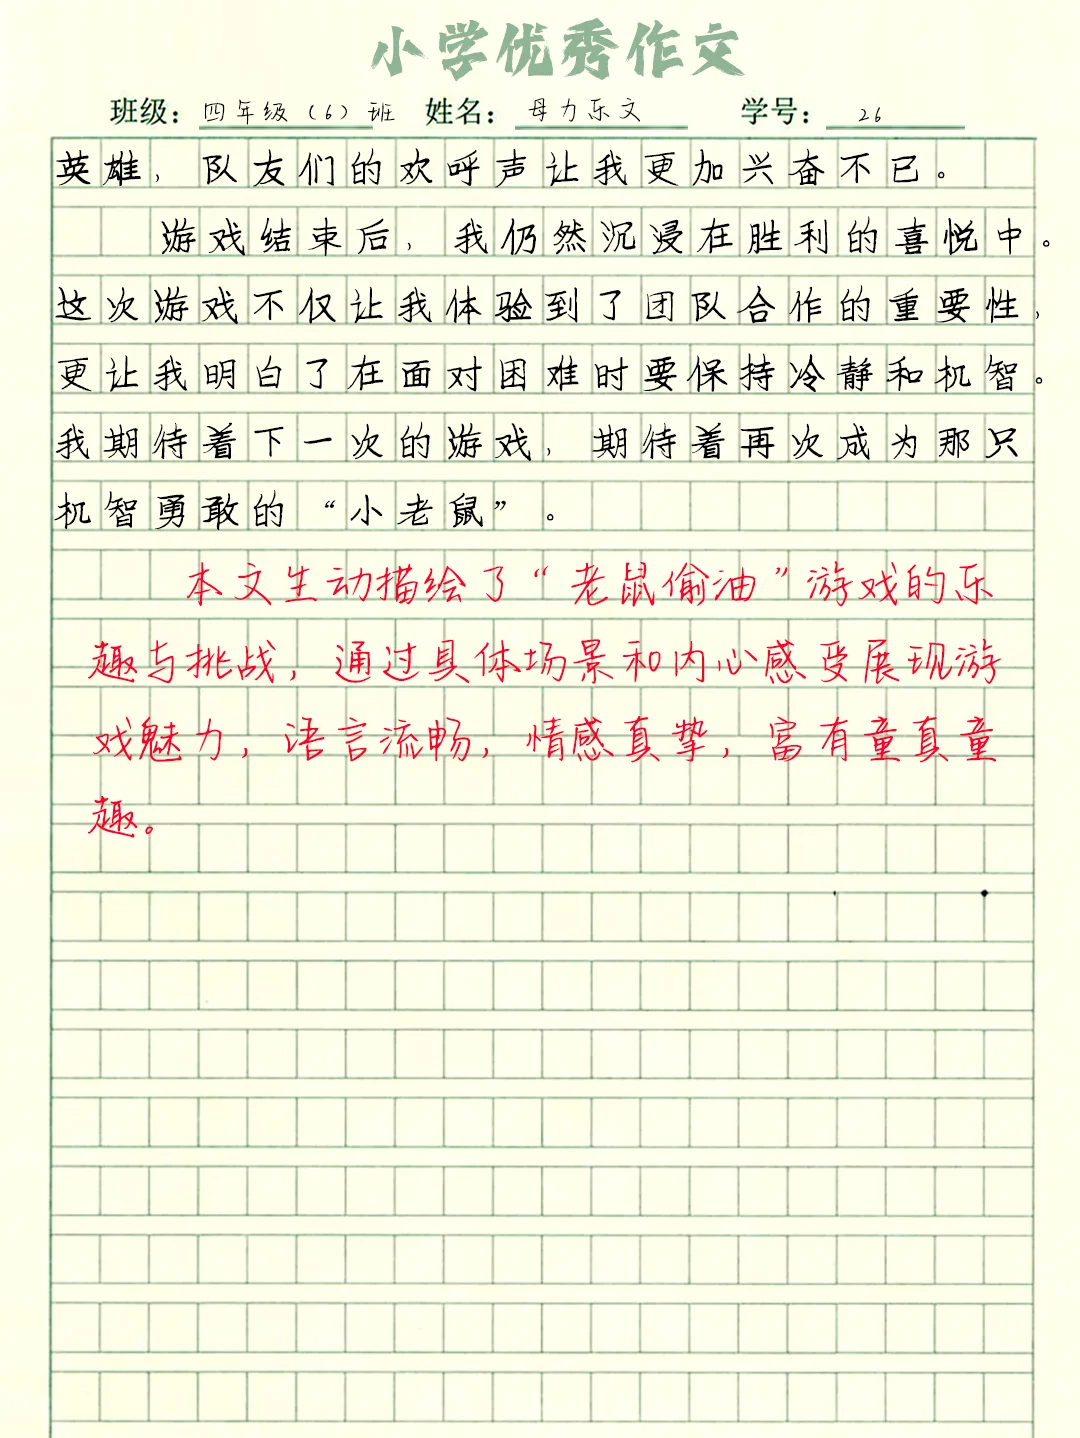 小学优秀作文
班级：四年级（6）班 姓名：母力乐文 学号：26
英雄，队友们的欢呼声让我更加兴奋不已。
游戏结束后，我仍然沉浸在胜利的喜悦中。
这次游戏不仅让我体验到了团队合作的重要性，
更让我明白了在面对困难时要保持冷静和机智。
我期待着下一次的游戏，期待着再次成为那只
机智勇敢的“小老鼠”。
本文生动描绘了“老鼠偷油”游戏的乐
趣与挑战，通过具体场景和内心感受展现游
戏魅力，语言流畅，情感真挚，富有童真童
趣。